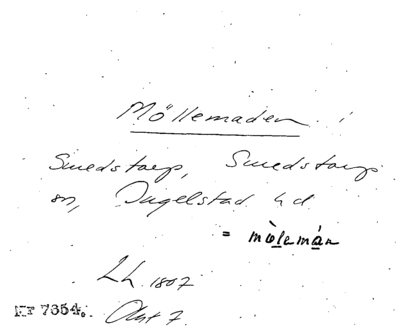 Möllemaden
Smedstorp, Smedstorps
sn, Ingelstad hd
= mölemán
Lh 1807
Akt 7
Nr 7354.